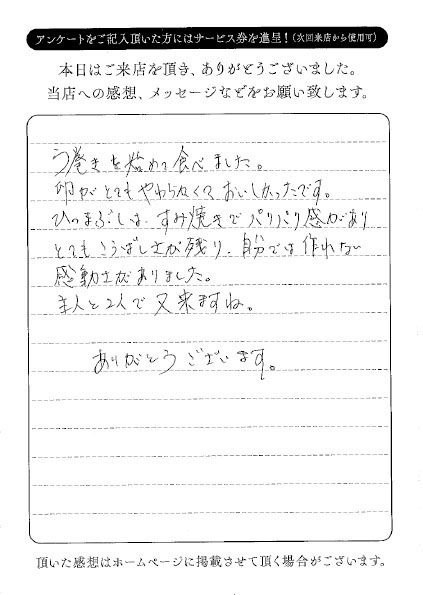 アンケートをご記入頂いた方にはサービス券を進呈！(次回来店から使用可)
本日はご来店を頂き、ありがとうございました。
当店への感想、メッセージなどをお願い致します。
う巻きを始めて食べました。
卵がとてもやわらくて、おいしかったです。
ひつまぶしは、すみ焼きでパリパリ感があり
とてもこうばしさが残り、自分では作れない
感動さがありました。
主人と2人で又来ますね。
ありがとうございます。
頂いた感想はホームページに掲載させて頂く場合がございます。